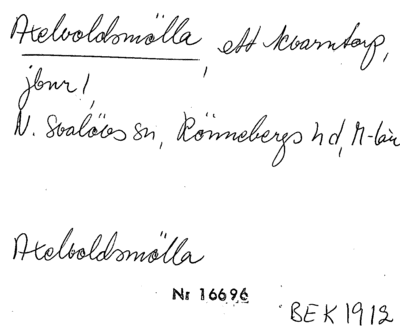 Axelvoldsmölla, ett kvarntorp,
jbnr 1,
N. Svalövs sn, Rönnebergs hd, M-län
Axelvoldsmölla
Nr 16696
BEK 1912